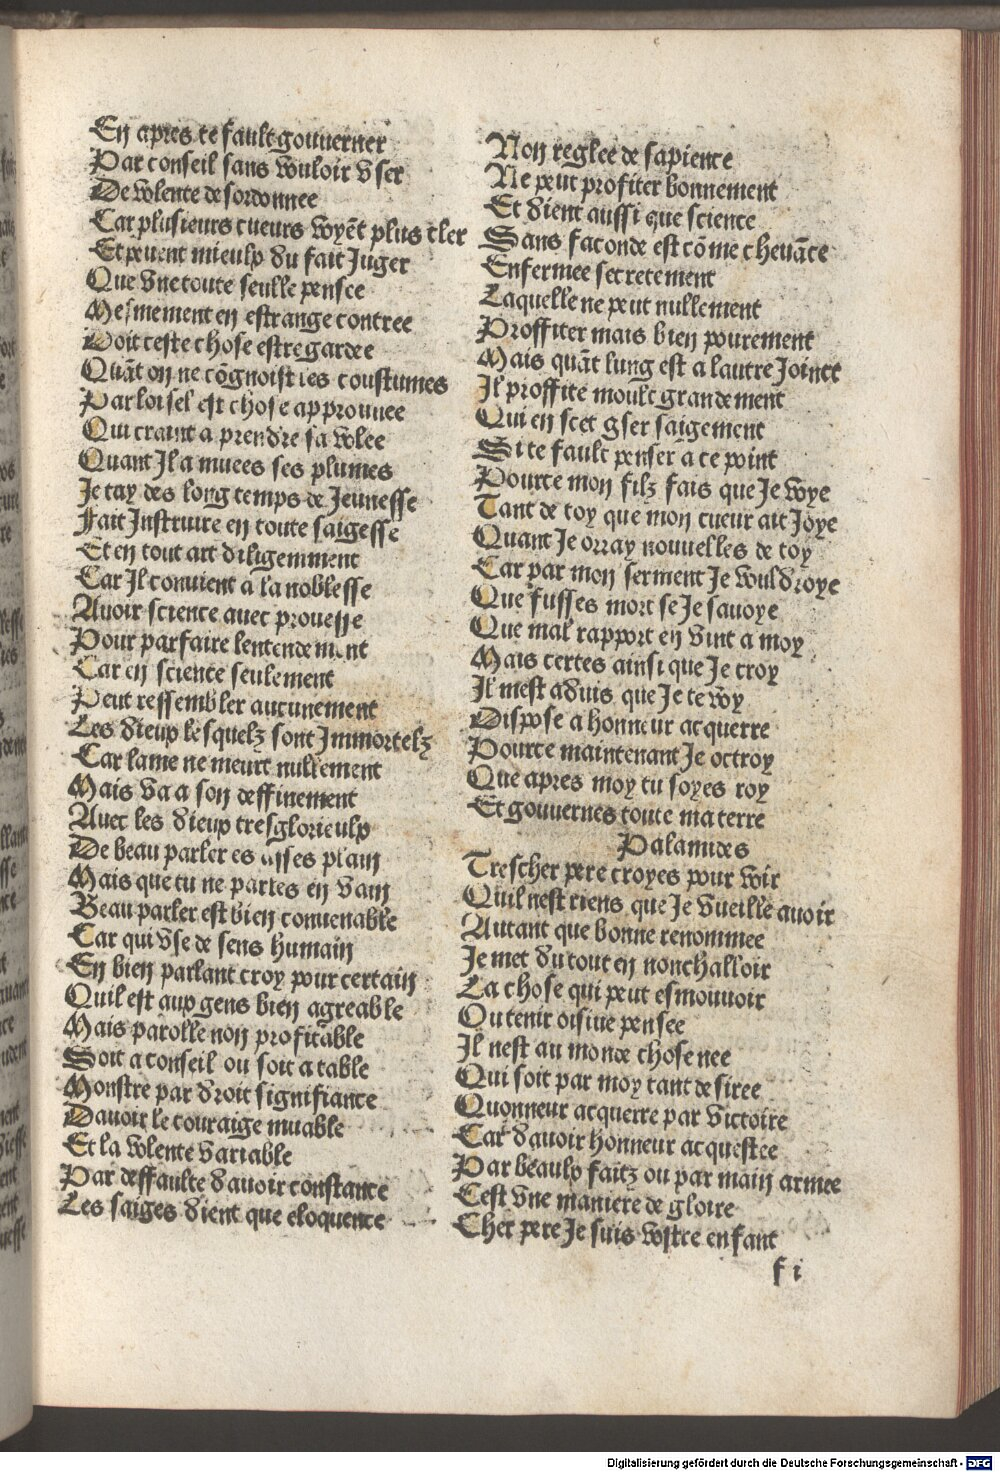 En apres te fault gouuerner
Par conseil sans vouloir vser
De volente desordonnee
Car plusieurs cueurs voyēt plus cler
Et peuent mieulx du fait Juger
Que vne toute seulle pensee
Mesmement en estrange contree
Doit ceste chose estre gardee
Quāt on ne cōgnoist les coustumes
Par loisel est chose approuuee
Qui craint a prendre sa volee
Quant Il a muees ses plumes
Je tay des long temps de Jeunesse
Fait Instruire en toute saigesse
Et en tout art diligemment
Car Il conuient a la noblesse
Auoir science auec prouesse
Pour parfaire lentendement
Car en science seulement
Peut ressembler aucunement
Les dieux lesquelz sont Jmmortelz
Car lame ne meurt nullement
Mais va a son deffinement
Auec les dieux tresglorieulx
De beau parler es plain
Mais que tu ne parles en vain
Beau parler est bien conuenable
Car qui vse de sens humain
En bien parlant croy pour certain
Quil est aux gens bien agreable
Mais parolle non profitable
Soit a conseil ou soit a table
Monstre par droit signifiance
Dauoir le couraige muable
Et la volente variable
Par deffaulte dauoir constance
Les saiges dient que eloquence
Non reglee de sapience
Ne peut profiter bonnement
Et dient aussi que science
Sans faconde est cōme cheuāce
Enfermee secretement
Laquelle ne peut nullement
Proffiter mais bien pourement
Mais quāt lung est a lautre Joinct
Il proffite moult grandement
Qui en scet vser saigement
Si te fault penser a ce point
Pource mon filz fais que Je voye
Tant de toy que mon cueur ait Joye
Quant Je orray nouuelles de toy
Car par mon serment Je vouldroye
Que fusses mort se Je sauoye
Que mal rapport en vint a moy
Mais certes ainsi que Je croy
Il mest aduis que Je te voy
Dispose a honneur acquerre
Pource maintenant Je octroy
Que apres moy tu soyes roy
Et gouuernes toute ma terre
Palamides
Trescher pere croyes pour voir
Quil nest riens que Je vueille auoir
Autant que bonne renommee
Je met du tout en nonchalloir
La chose qui peut esmouuoir
Ou tenir oisiue pensee
Il nest au monde chose nee
Qui soit par moy tant desiree
Quonneur acquerre par victoire
Car dauoir honneur acquestee
Par beaulx faitz ou par main armee
Cest vne maniere de gloire
Cher pere Je suis vostre enfant
f i
Digitalisierung gefördert durch die Deutsche Forschungsgemeinschaft - DFG